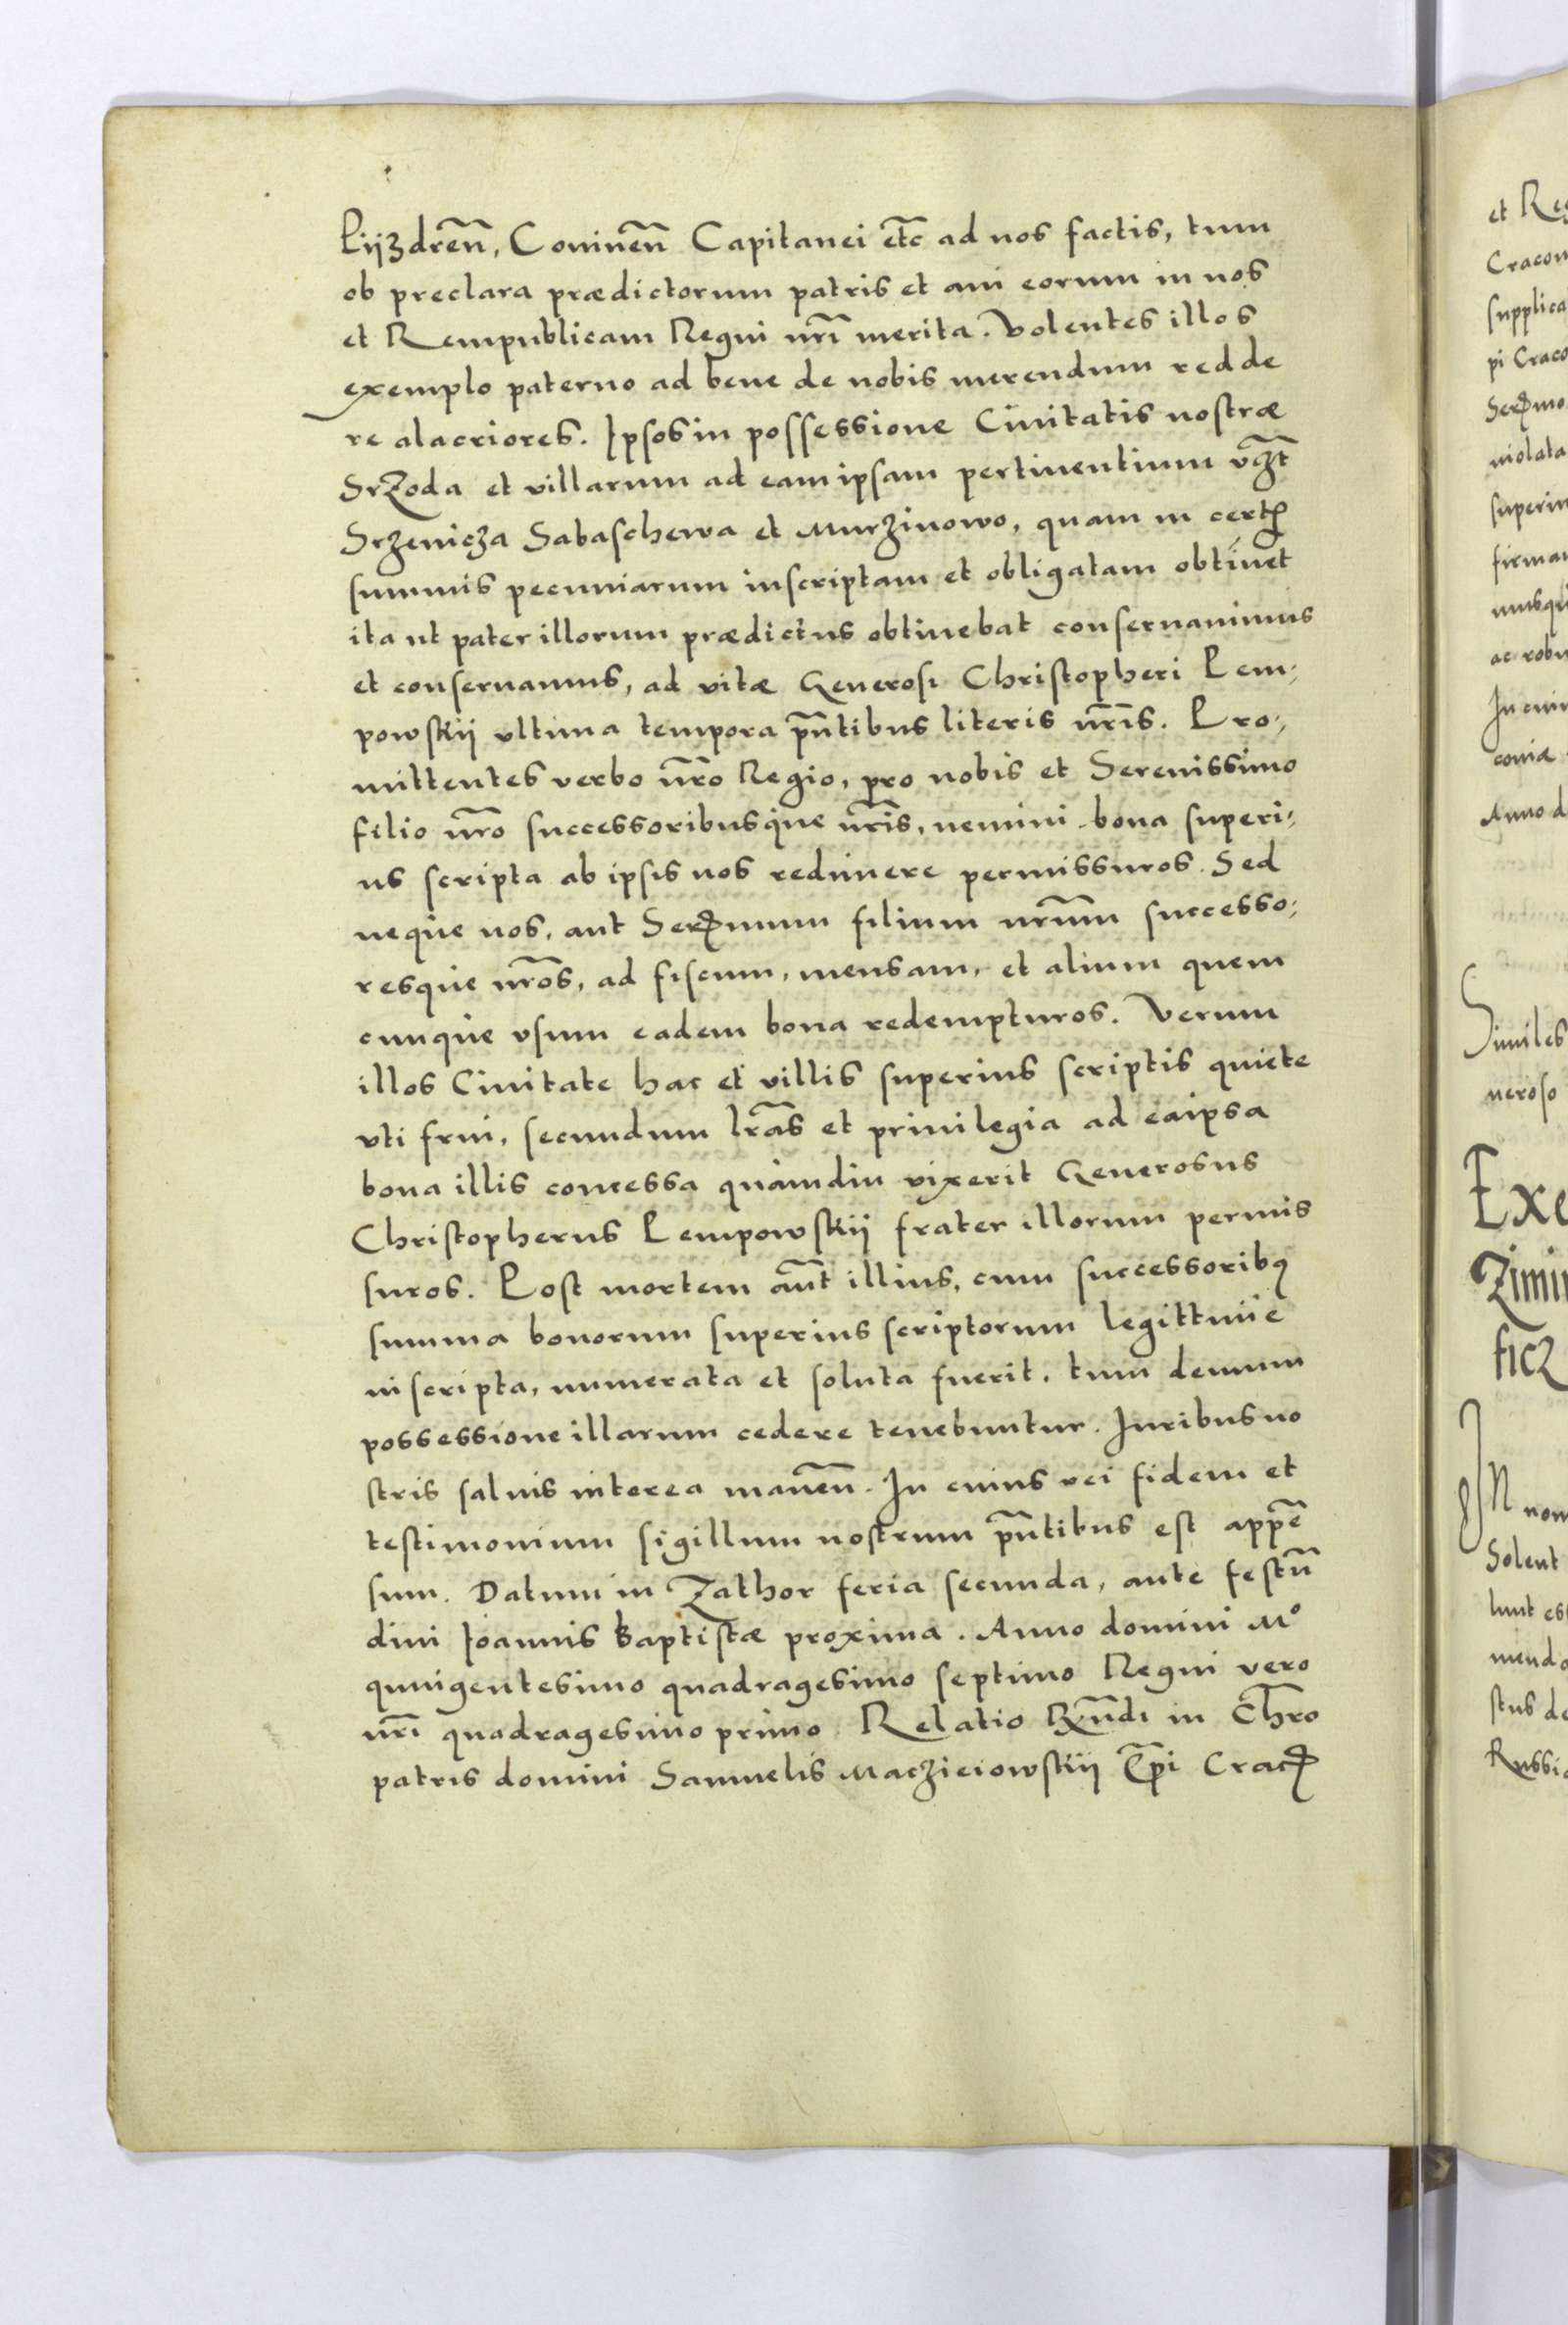 Pijzdreñ, Coninēn Capitanei etc̄ ad nos factis, tum
ob preclara prædictorum patris et aui eorum in nos
et Rempublicam Regni nr̄i merita. Volentes illos
exemplo paterno ad bene de nobis merendum redde
re alacriores. Ipsos in possessione Ciuitatis nostræ
SrZoda et villarum ad eam ipsam pertinentium vꝫt̄
Srzenicza Sabaschewa et Murzinowo, quam in certꝭ
summis pecuniarum inscriptam et obligatam obtinet
ita ut pater illorum prædictus obtinebat conseruauimus
et conseruamus, ad vitæ Generosi Christopheri Pem,
powskij vltima tempora pn̄tibus literis nr̄is. Pro,
mittentes verbo nr̄o Regio, pro nobis et Serenissimo
filio nr̄o successoribusque nr̄is, nemini bona superi,
us scripta ab ipsis nos redimere permissuros. Sed
neque nos, aut Serꝭmum filium nr̄um successo,
resque nr̄os, ad fiscum, mensam, et alium quem
cunque vsum eadem bona redempturos. Verum
illos Ciuitate hac et villis superius scriptis quiete
vti frui, secundum lr̄as et priuilegia ad eaipsa
bona illis concessa quàmdiu vixerit Generosus
Christopherus Pempowskij frater illorum permis
suros. Post mortem aūt illius, cum successoribꝰ
summa bonorum superius scriptorum legittime
inscripta, numerata et soluta fuerit, tum demum
possessione illarum cedere tenebuntur. Iuribus no
stris saluis interea manēn. In cuius rei fidem et
testimonium sigillum nostrum pn̄tibus est appē
sum. Datum in Zathor feria secunda, ante festū
diui Ioannis Baptistæ proxima. Anno domini Mº
quingentesimo quadragesimo septimo Regni vero
nr̄i quadragesimo primo Relatio Rn̄di in Chr̄o
patris domini Samuelis Maczieiowskij Ep̄i Cracꝭ
et Re
Cracou
supplica
pi Craco
Serꝭmo
uiolata
superiu
firmau
ac robu
In cuiu
couiæ
Anno d
Similes
neroso
Exe
Zimi
ficz
IN nom
Solent
lunt es
mendo
stus de
Russi